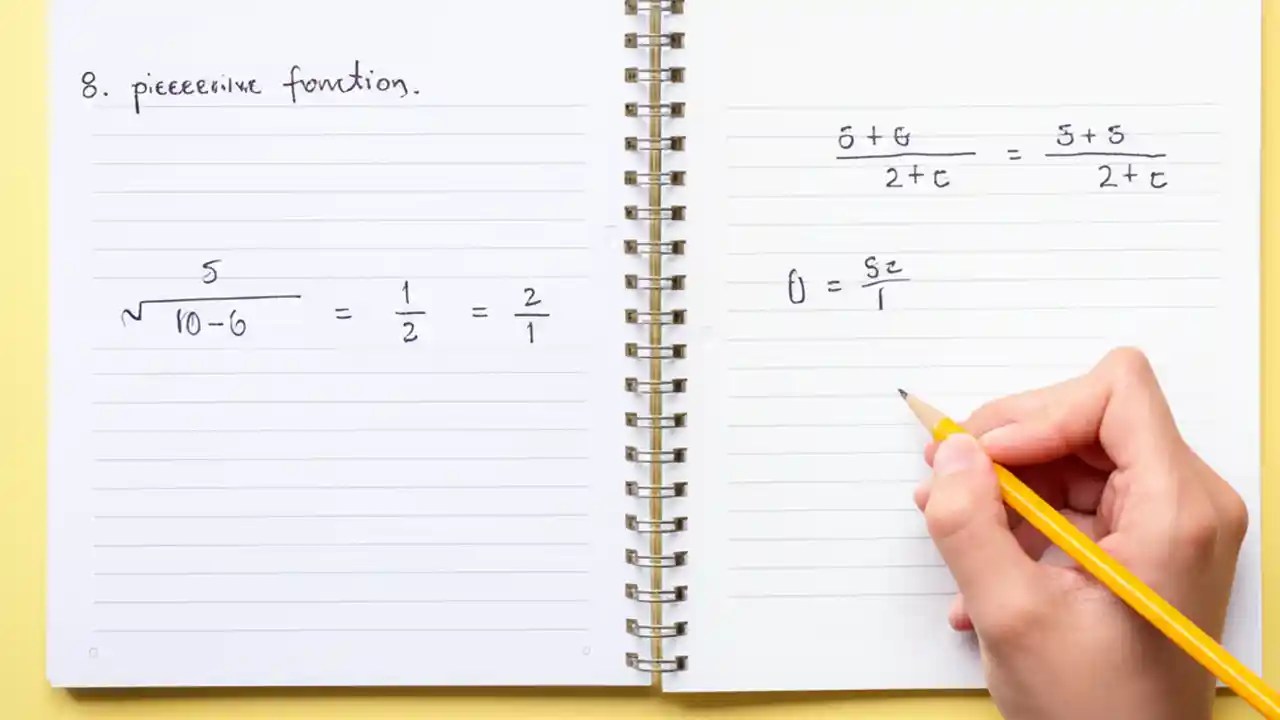 8. pieceewise fonction.
5
√10-6 = 1/2 = 2/1
5+6/2+c = 5+5/2+c
0 = 5z/1